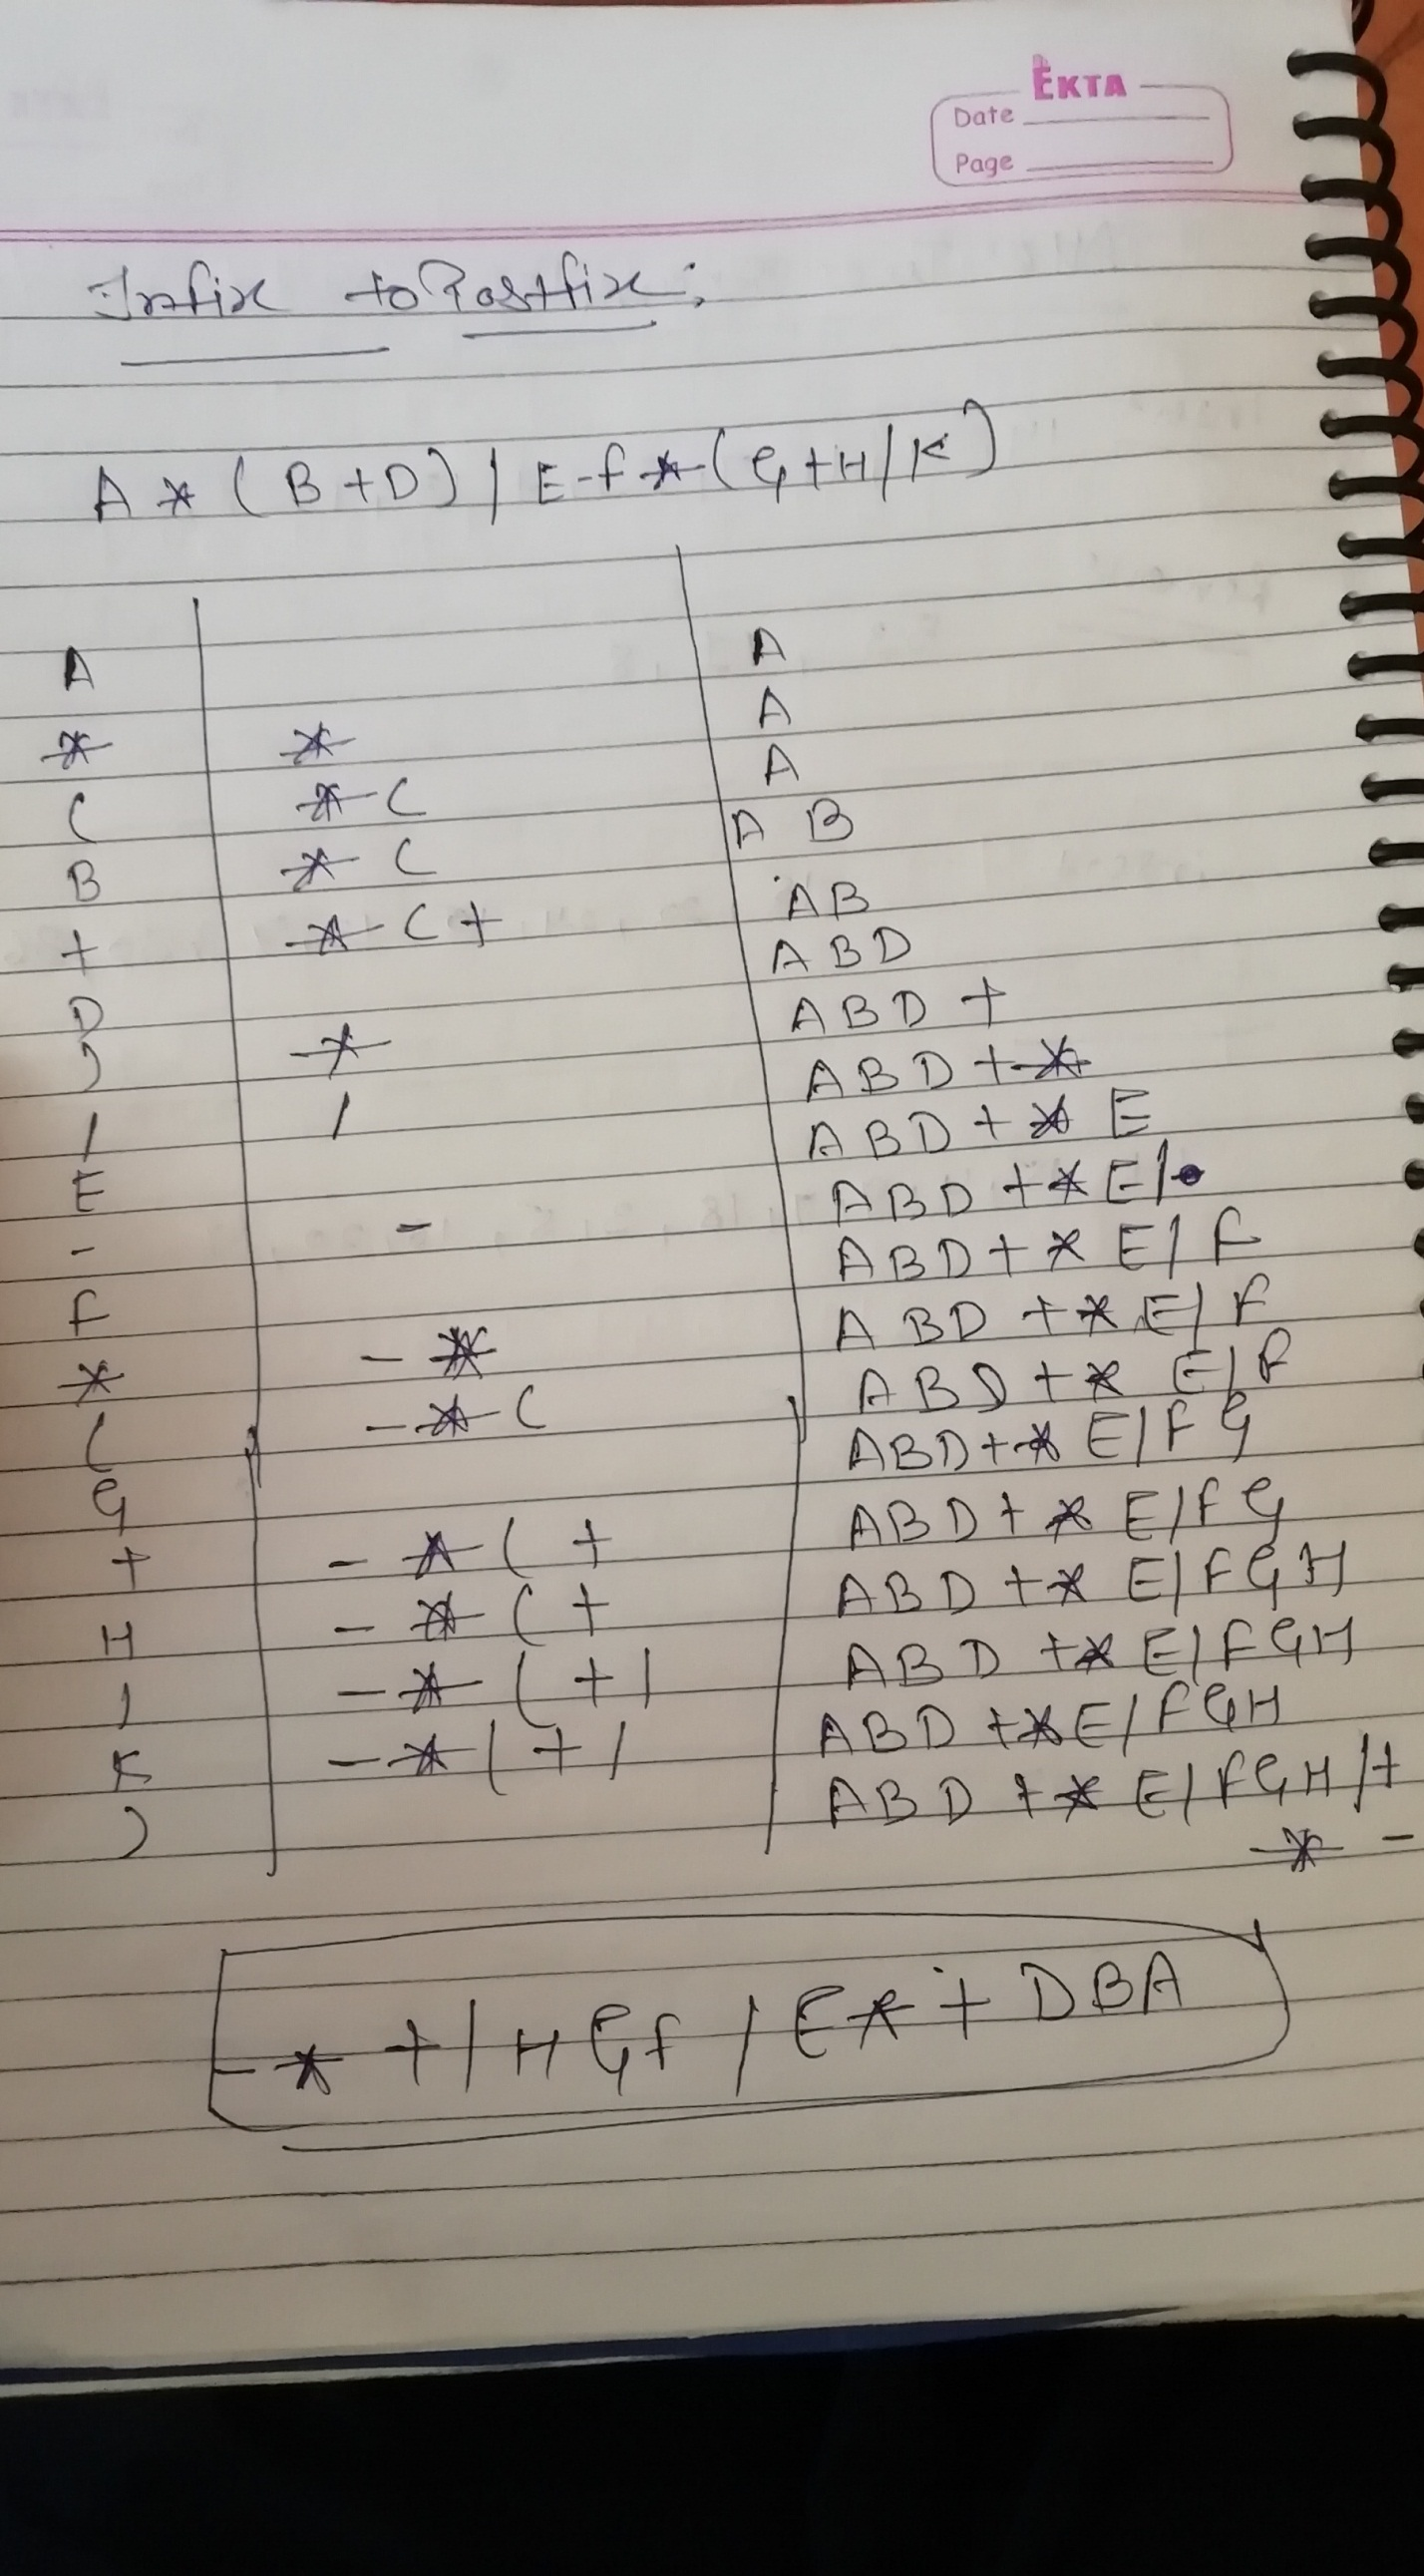 EKTA
Date
Page
Infix to Postfix:
A * ( B + D ) / E - F * ( G + H / K )
A A
* * A
( * ( A
B * ( A B
+ * ( + A B
D A B D
) * A B D +
/ / A B D + *
E A B D + * E
- - A B D + * E /
F A B D + * E / F
* - * A B D + * E / F
( - * ( A B D + * E / F
G A B D + * E / F G
+ - * ( + A B D + * E / F G
H - * ( + A B D + * E / F G H
/ - * ( + / A B D + * E / F G H
K - * ( + / A B D + * E / F G H
) A B D + * E / F G H / +
* -
- * + / H G F / E * + D B A